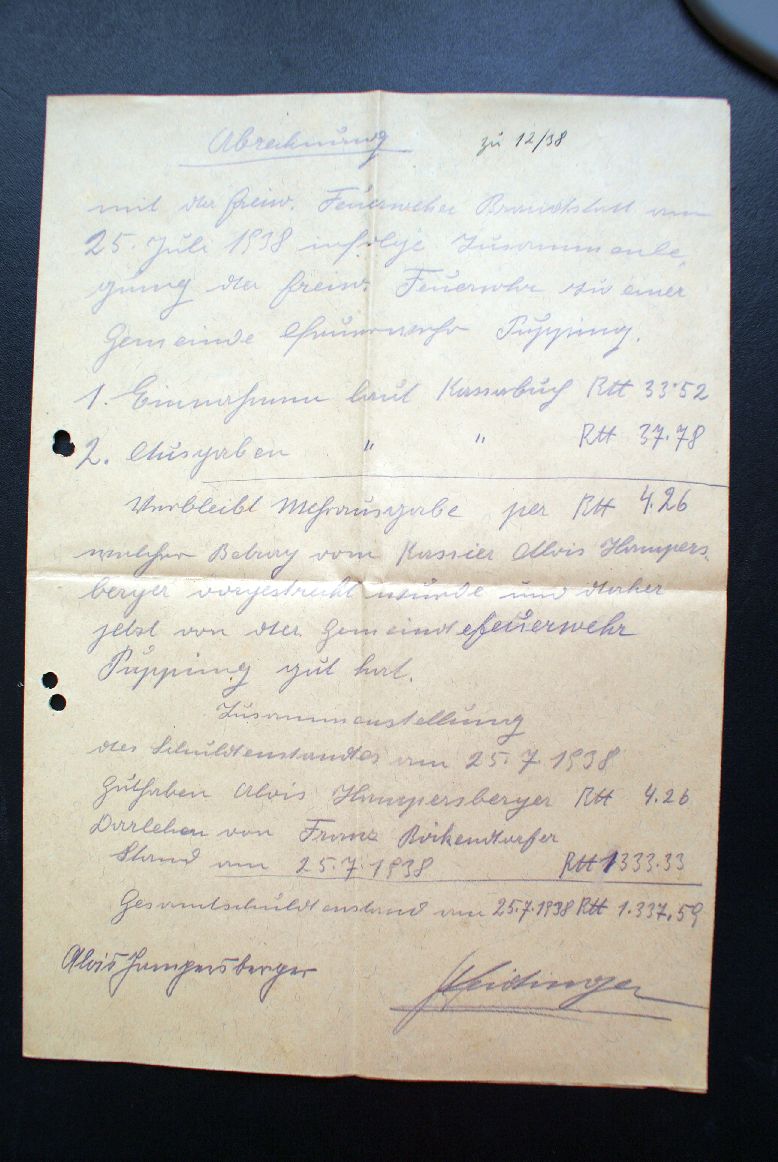 Abrechnung zu 12/38
mit der freiw. Feuerwehr Brandstatt am
25. Juli 1938 infolge Zusammenle,
gung der freiw. Feuerwehr zu einer
Gemeinde Feuerwehr Pupping.
1. Einnahmen laut Kassabuch RM 33·52
2. Ausgaben " " RM 37.78
Verbleibt Mehrausgabe per RM 4.26
welcher Betrag vom Kassier Alois Hampers,
berger vorgestreckt wurde und daher
jetzt von der Gemeindefeuerwehr
Pupping gut hat.
Zusammenstellung
des Schuldenstandes am 25.7.1938
Guthaben Alois Hampersberger RM 4.26
Darlehen von Franz
Stand am 25.7.1938 RM 1333.33
Gesamtschuldenstand am 25.7.1938 RM 1.337.59
Alois Hampersberger